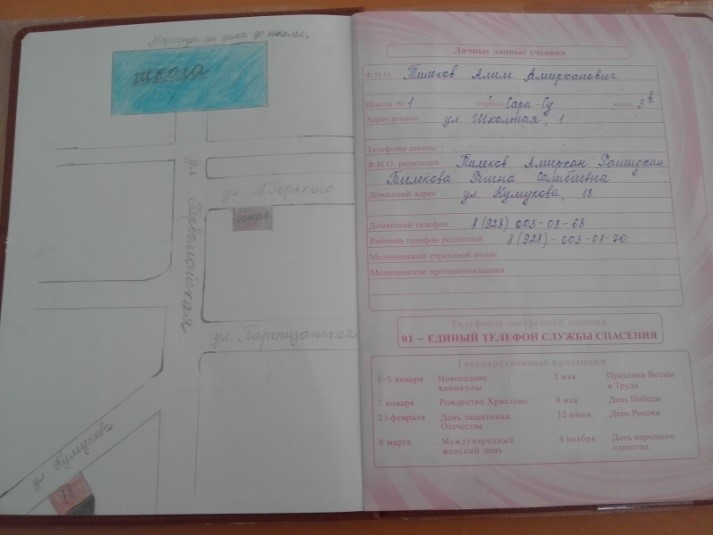 Маршрут от дома до школы.
школа
ул. М. Горького
ул. Первомайская
ул. Партизанская
ул. Кумукова
18
Личные данные ученика
Ф.И.О. Тилеков Алим Амирханович
Школа № 1 города Сары-Су класс 3
Адрес школы ул. Школьная, 1
Телефоны школы
Ф.И.О. родителей Тилеков Амирхан
Тилекова
Домашний адрес ул Кумукова, 18
Домашний телефон 8 (928) 003-08-68
Рабочий телефон родителей 8 (928) - 003-08-70
Медицинский страховой полис
Медицинские противопоказания
Телефоны экстренной помощи
01 – ЕДИНЫЙ ТЕЛЕФОН СЛУЖБЫ СПАСЕНИЯ
Государственные праздники
1–5 января Новогодние каникулы
7 января Рождество Христово
23 февраля День защитника Отечества
8 марта Международный женский день
1 мая Праздник Весны и Труда
9 мая День Победы
12 июня День России
4 ноября День народного единства